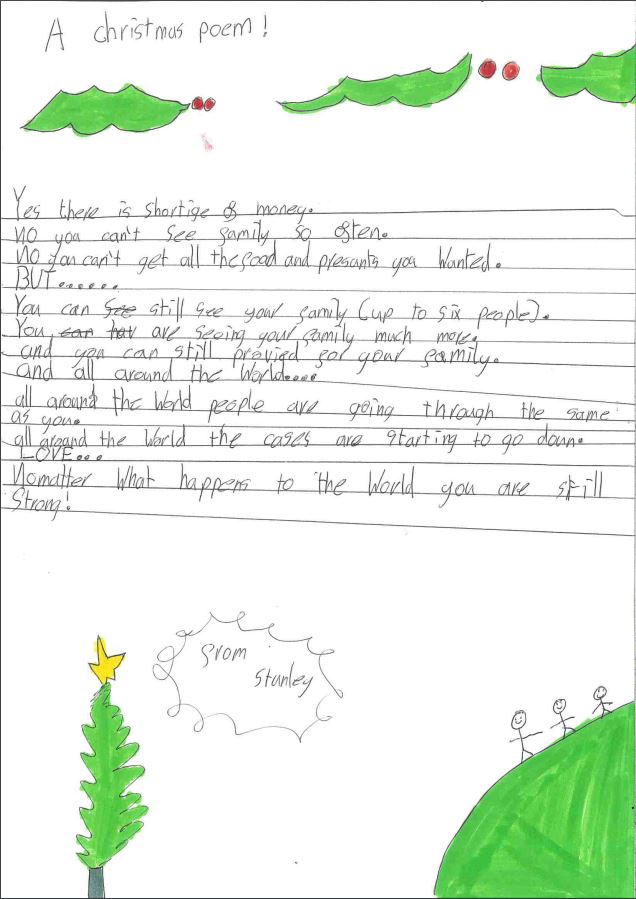 A christmas poem!
Yes there is shortige of money.
no you can't see family so often.
No you can't get all the food and presants you wanted.
BUT......
You can see still see your family (up to six people).
You can hav are seeing your family much more.
and you can still provied for your family.
and all around the World....
all around the World people are going through the same
as you.
all around the World the cases are starting to go down.
LOVE...
Nomatter What happens to the World you are still
Strong!
from
Stanley